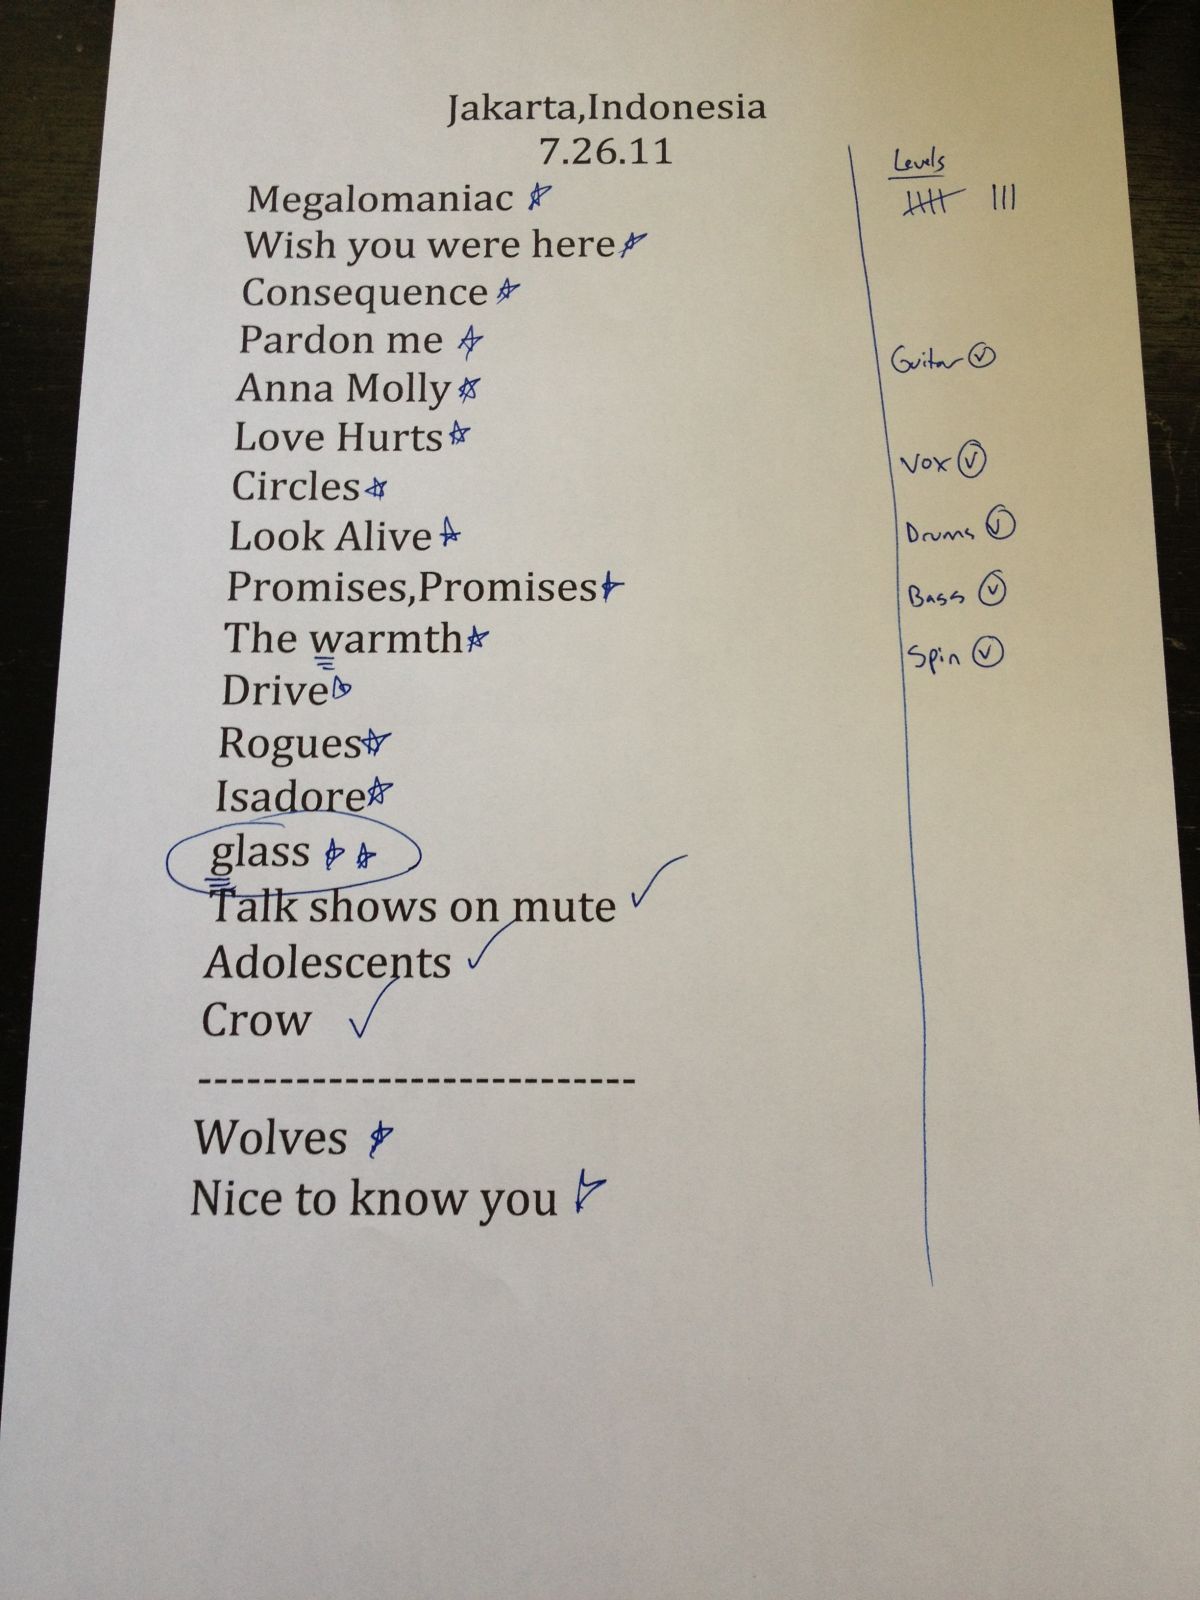 Jakarta,Indonesia
7.26.11
Megalomaniac
Wish you were here
Consequence
Pardon me
Anna Molly
Love Hurts
Circles
Look Alive
Promises,Promises
The warmth
Drive
Rogues
Isadore
glass
Talk shows on mute
Adolescents
Crow
---------------------------
Wolves
Nice to know you
Levels
Guitar
Vox
Drums
Bass
Spin